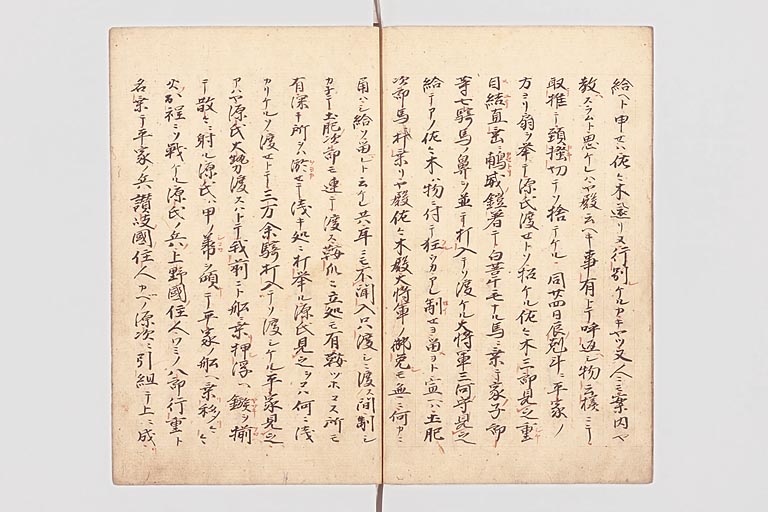 給ヘト申セハ佐々木遂リ又行別ケルカキヤツ又人ニ案内ヤ
教ヘスラムト思ケレハヤ殿云ヘキ事有トテ呼返シ物云様ニテ
取推テ頭掻切テソ捨テケル 同廿四日辰剋斗ニ平家ノ
方ヨリ扇ヲ挙テ源氏渡セトソ招ケル佐々木三郎見之重
目結直垂ニ 威鎧着テ白葦毛ナル馬ニ乗テ家子郎
等七騎馬ノ鼻ヲ並テ打入テソ渡ケル大将軍三河守見之
給テアノ佐々木ハ物ニ付テ狂ウカアレ制セヨ留ヨト宣ヘハ土肥
次郎馬ニ打乗リヤ殿佐々木殿大将軍ノ御免モ無ニ何カニ
角ハシ給ソ留レト云ケレ共耳ニモ不聞入只渡シニ渡ス間制シ
カネテ土肥次郎モ連テ渡ス鞍爪ニ立処モ有鞍ツホコス所モ
有深キ所ヲハ游セテ浅キ処ニ打挙ル源氏見之ヲハ何ニ浅
カリケルソ渡セトテ三万余騎打入テソ渡シケル平家見之
アハヤ源氏大勢渡スハトテ我前ニト船ニ乗押浮ヘ鏃ヲ揃
テ散々ニ射ル源氏ハ甲ノ ヲ傾テ平家ノ船ニ乗移々々
火出程ニソ戦ケル源氏ノ兵ハ上野國住人ワミノ八郎行重ト
名乗テ平家ノ兵讃岐國住人カヘノ源次ニ引組テ上ニ成